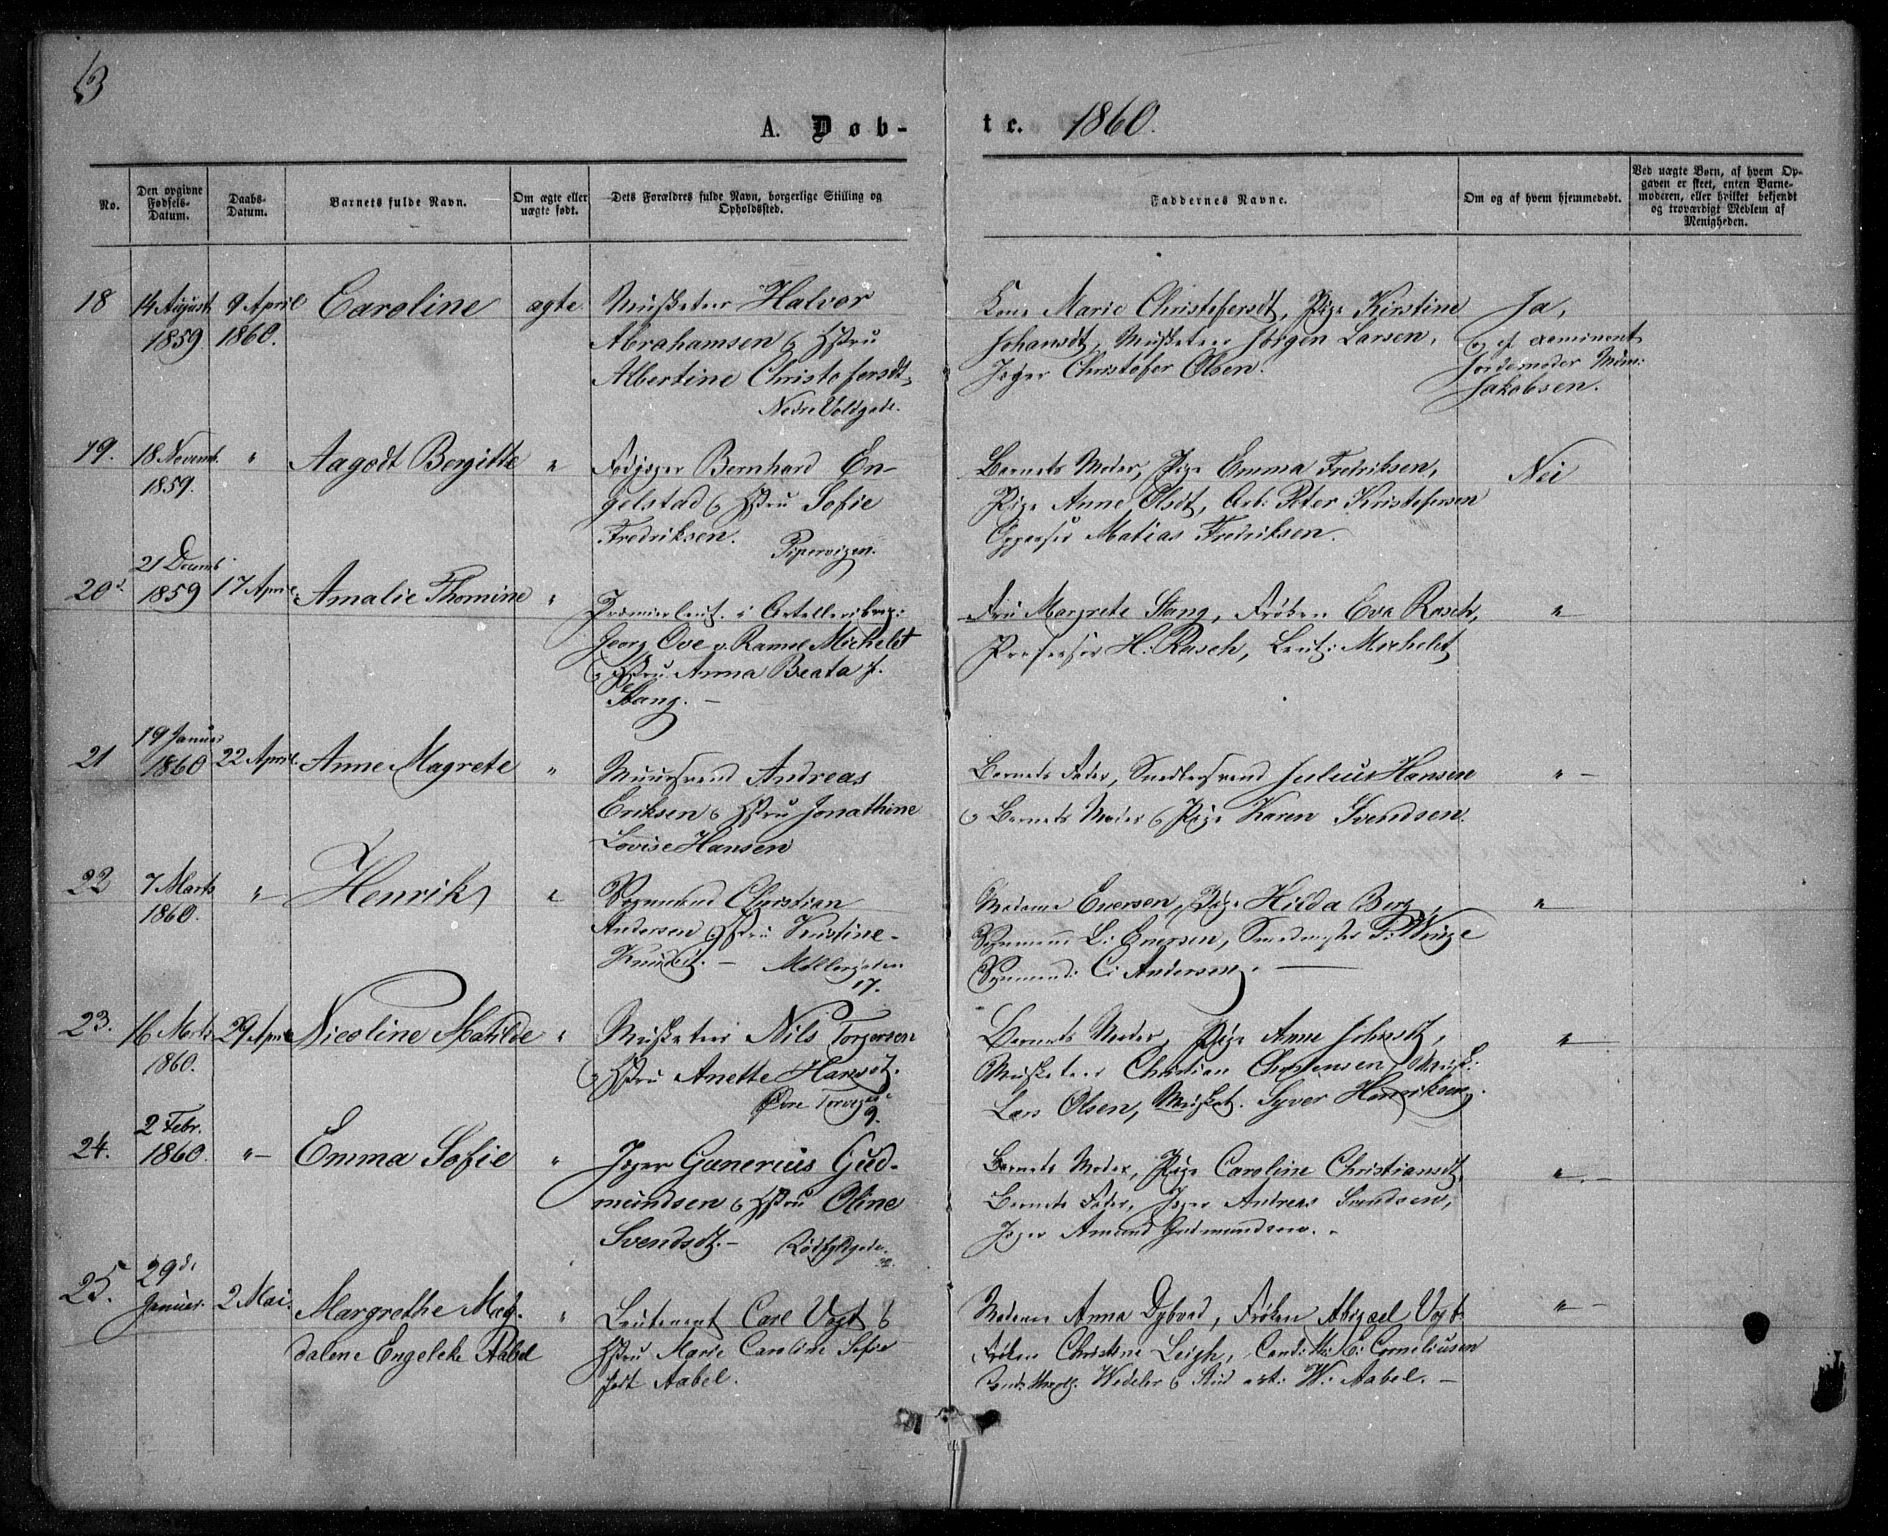 13
A. Døb-
te. 1860.
No.
Den opgivne Fødsels-Datum.
Daabs-Datum.
Barnets fulde Navn.
Om ægte eller uægte født.
Dets Forældres fulde Navn, borgerlige Stilling og Opholdssted.
Faddernes Navne.
Om og af hvem hjemmedøbt.
Ved uægte Børn, af hvem Op-
gaven er skeet, enten Barne-
moderen, eller hvilket bekjendt
og troværdigt Medlem af
Menigheden.
18 14 August 9 April Caroline ægte. Musketeer Halvor
1859. 1860. Abrahamsen & Hstru
Albertine Christofersdt.
Nedre Voldgade.
Kone Marie Christofersdt, Pige Kirstine Ja,
Johansdt, Musketeer Jørgen Larsen, og af examineret
Jæger Christofer Olsen. Jordemoder
Jakobsen.
19. 18 Novemb. " Aagodt Bergitte " Fodjæger Bernhard En-
1859. gelstad & Hstru Sofie
Fredriksen. Pipervigen.
Barnets Moder, Pige Emma Fredriksen, Nei
Pige Anne Olsdt, Arb. Peter Kristofersen
Matias Fredriksen.
21 Decemb.
20 1859 17 April Amalie Thomine " Premierleut. i
Georg Ove v. Ramm Michelet
& Hstru Anna Beata f.
Stang. -
Fru Margrete Stang, Frøken Eva Rasch, "
Professor H. Rasch, Leut: Michelet
19 Januar
21 1860 22 April. Anne Magrete " Muursvend Andreas
Eriksen & Hstru Jonathine
Lovise Hansen
Barnets Fader, Julius Hansen " -
& Barnets Moder & Pige Karen Svendsen.
22 7 Marts " Henrik " Vognmand Christian
1860. Andersen & Hstru Kristine
Knudsdt. - Møllergaden
17.
Madame Eversen, Pige Hilda Berg, "
Vognmand L: Eversen, Smedmester P: Winge
Vognmand: C: Andersen. -
23. 16 Marts 29 April Nicoline Matilde " Musketeer Nils Torgersen
1860. & Hstru Anette Hansdt.
Øvre Torvgade
9.
Barnets Moder, Pige Anne Johnsdt, "
Musketeer Christian Christensen, Musk:
Lars Olsen, Musket. Syver Henriksen.
2 Febr.
24. 1860. " - Emma Sofie " Jæger Gunerius Gud-
mundsen & Hstru Oline
Svendsdt. - Rødfyldgade
Barnets Moder, Pige Caroline Christiansdt, " -
Barnets Fader, Jæger Andreas Svendsen,
Jæger Amund Gudmundsen. -
29de
25. Januar. 2 Mai. Margrethe Mag- " Leutenant Carl Vogt &
dalene Engelcke Aabel Hstru Marie Caroline Sofie
født Aabel.
Madame Anna Dybvad, Frøken Abigael Vogt " -
Frøken Christine Leigh, Cand: M: E: Corneliusen
Wedeler & Stud art: W: Aabel. -